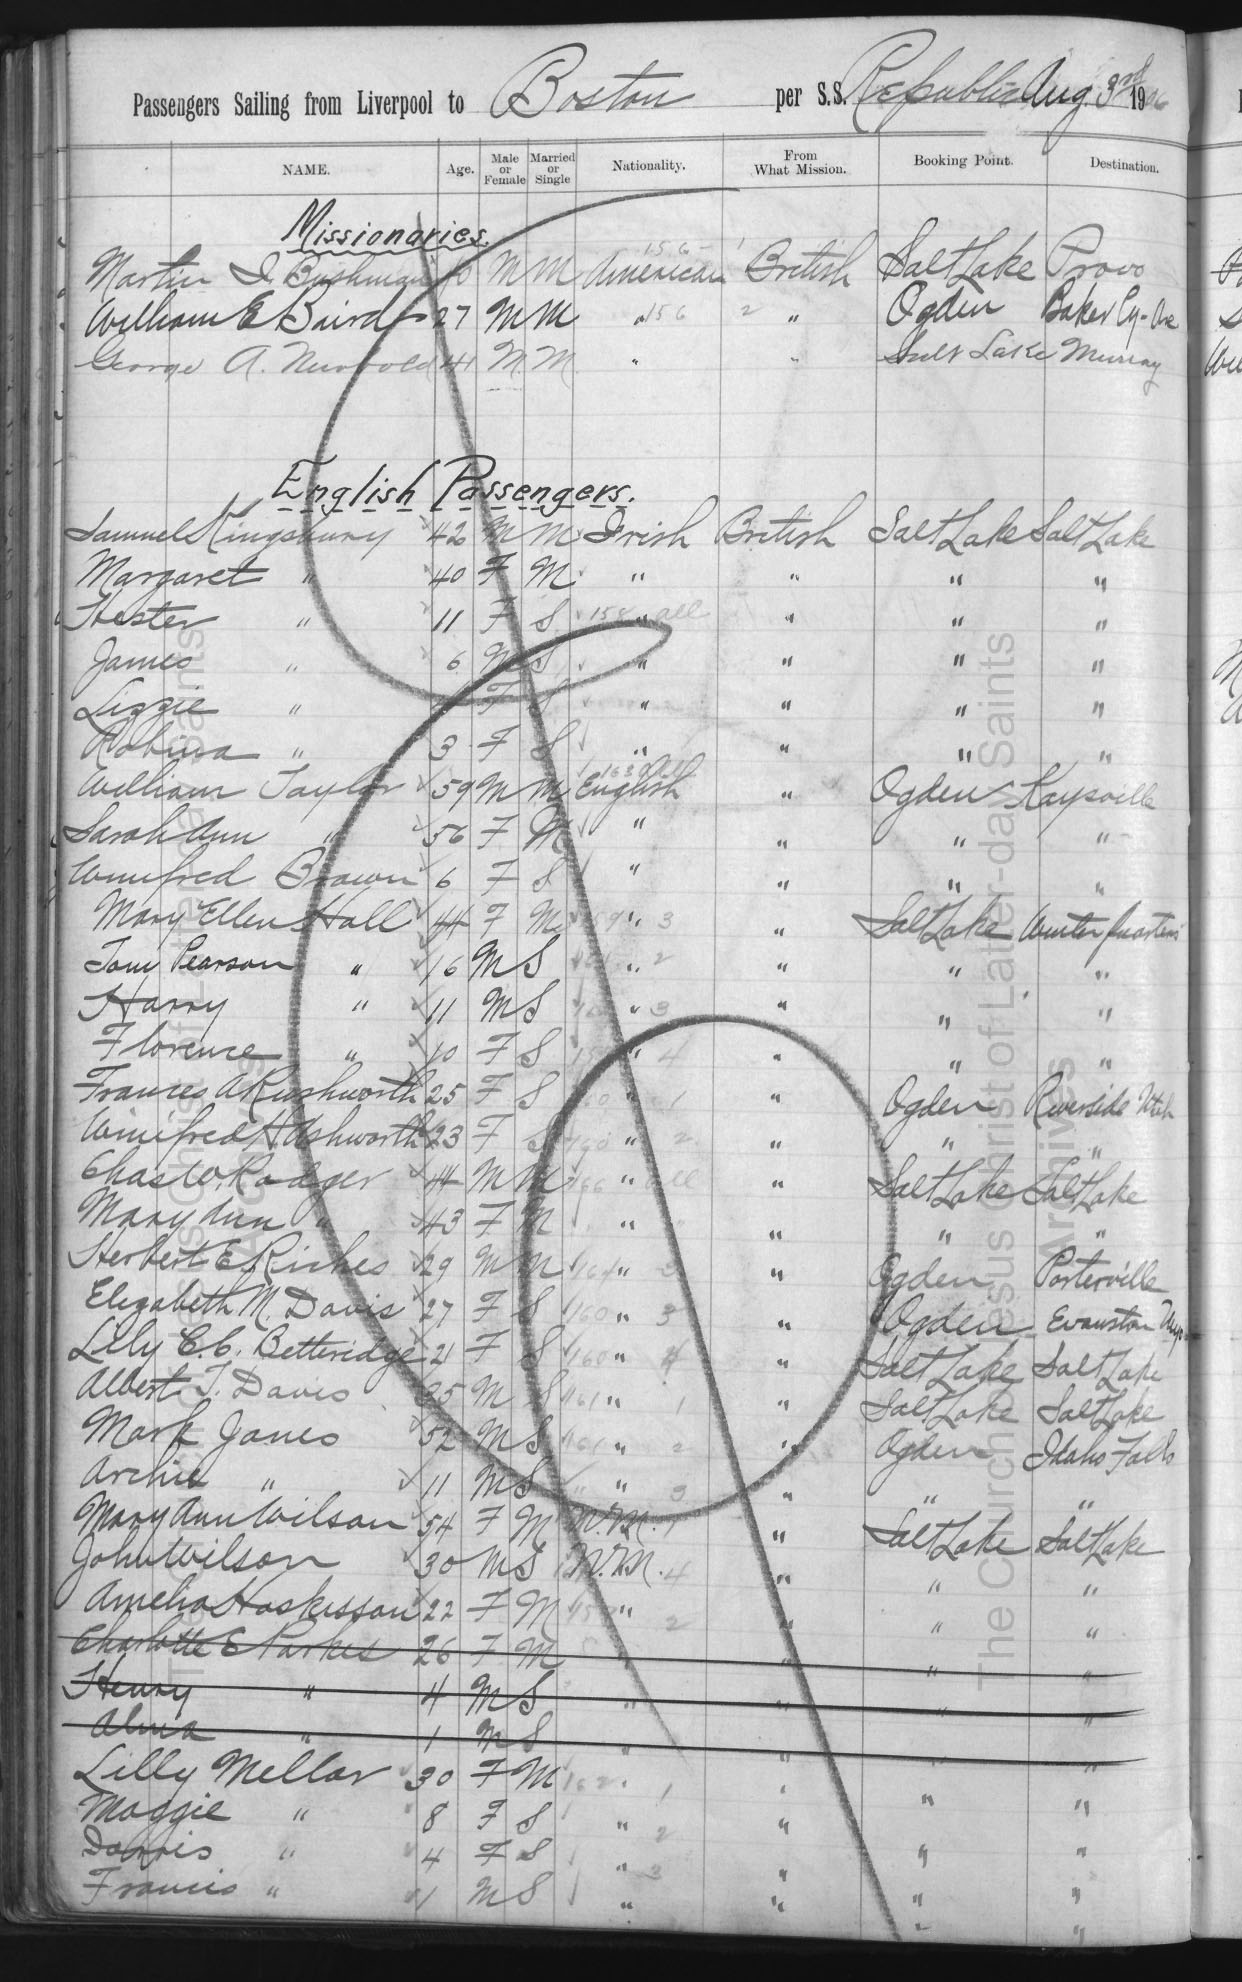 Passengers Sailing from Liverpool to Boston per S.S. Republic Aug. 3rd 1906
NAME. Age. Male or Female Married or Single Nationality. From What Mission. Booking Point. Destination.
Missionaries.
Martin I. Bushman M M American British Salt Lake Provo
William E Baird 27 M M " " Ogden Baker Cy - Ore
George A. Newbold 41 M M " " Salt Lake Murray
English Passengers.
Samuel Kingsbury 42 M M Irish British Salt Lake Salt Lake
Margaret " 40 F M " " " "
Hester " 11 F S " " " "
James " 6 M S " " " "
Lizzie " F S " " " "
Robina " 3 F S " " " "
William Taylor 59 M M English " Ogden Kaysville
Sarah Ann " 56 F M " " " "
Winifred Brown 6 F S " " " "
Mary Ellen Hall 44 F M " " Salt Lake Winter Quarters
Tom Pearson " 16 M S " " " "
Harry " 11 M S " " " "
Florence " 10 F S " " " "
Frances A Rushworth 25 F S " " Ogden Riverside Utah
Winifred H. Ashworth 23 F S " " " "
Chas W. Rodger 44 M M " " Salt Lake Salt Lake
Mary Ann " 43 F M " " " "
Herbert E. Riches 29 M M " " Ogden Porterville
Elizabeth M. Davis 27 F S " " Ogden Evanston Wyo
Lily C. C. Betteridge 21 F S " " Salt Lake Salt Lake
Albert T. Davis 25 M S " " Salt Lake Salt Lake
Mark Jones 52 M S " " Ogden Idaho Falls
Archie " 11 M S " " " "
Mary Ann Wilson 54 F M N.M. " Salt Lake Salt Lake
John Wilson 30 M S N.M. " " "
Amelia Hoskisson 22 F M " " " "
Charlotte E Parkes 26 F M " " "
Henry " 4 M S " " " "
Alma " 1 M S " " " "
Lilly Mellor 30 F M " " " "
Maggie " 8 F S " " " "
Dorris " 4 F S " " " "
Francis " 1 M S " " " "